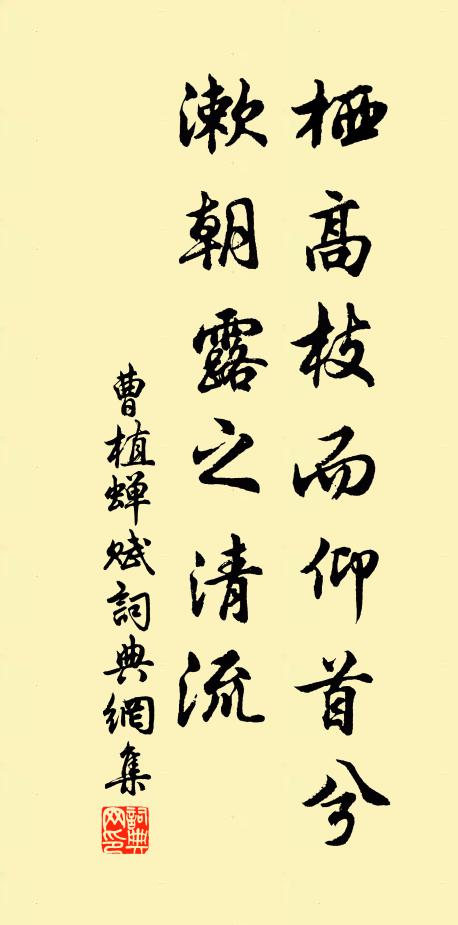 栖高枝而仰首兮
漱朝露之清流
曹植蝉赋詞典網集
詞典网印